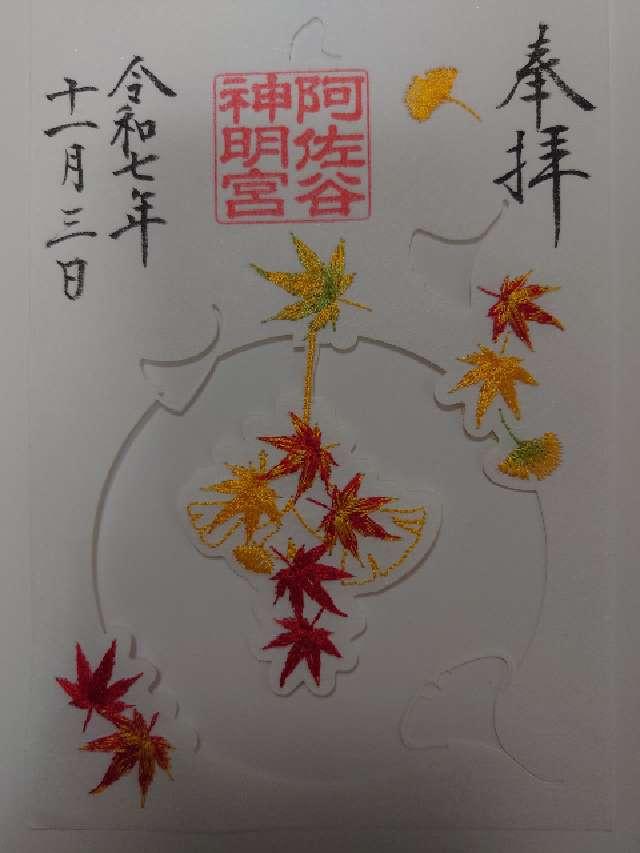 奉拝
阿佐谷
神明宮
令和七年
十一月三日